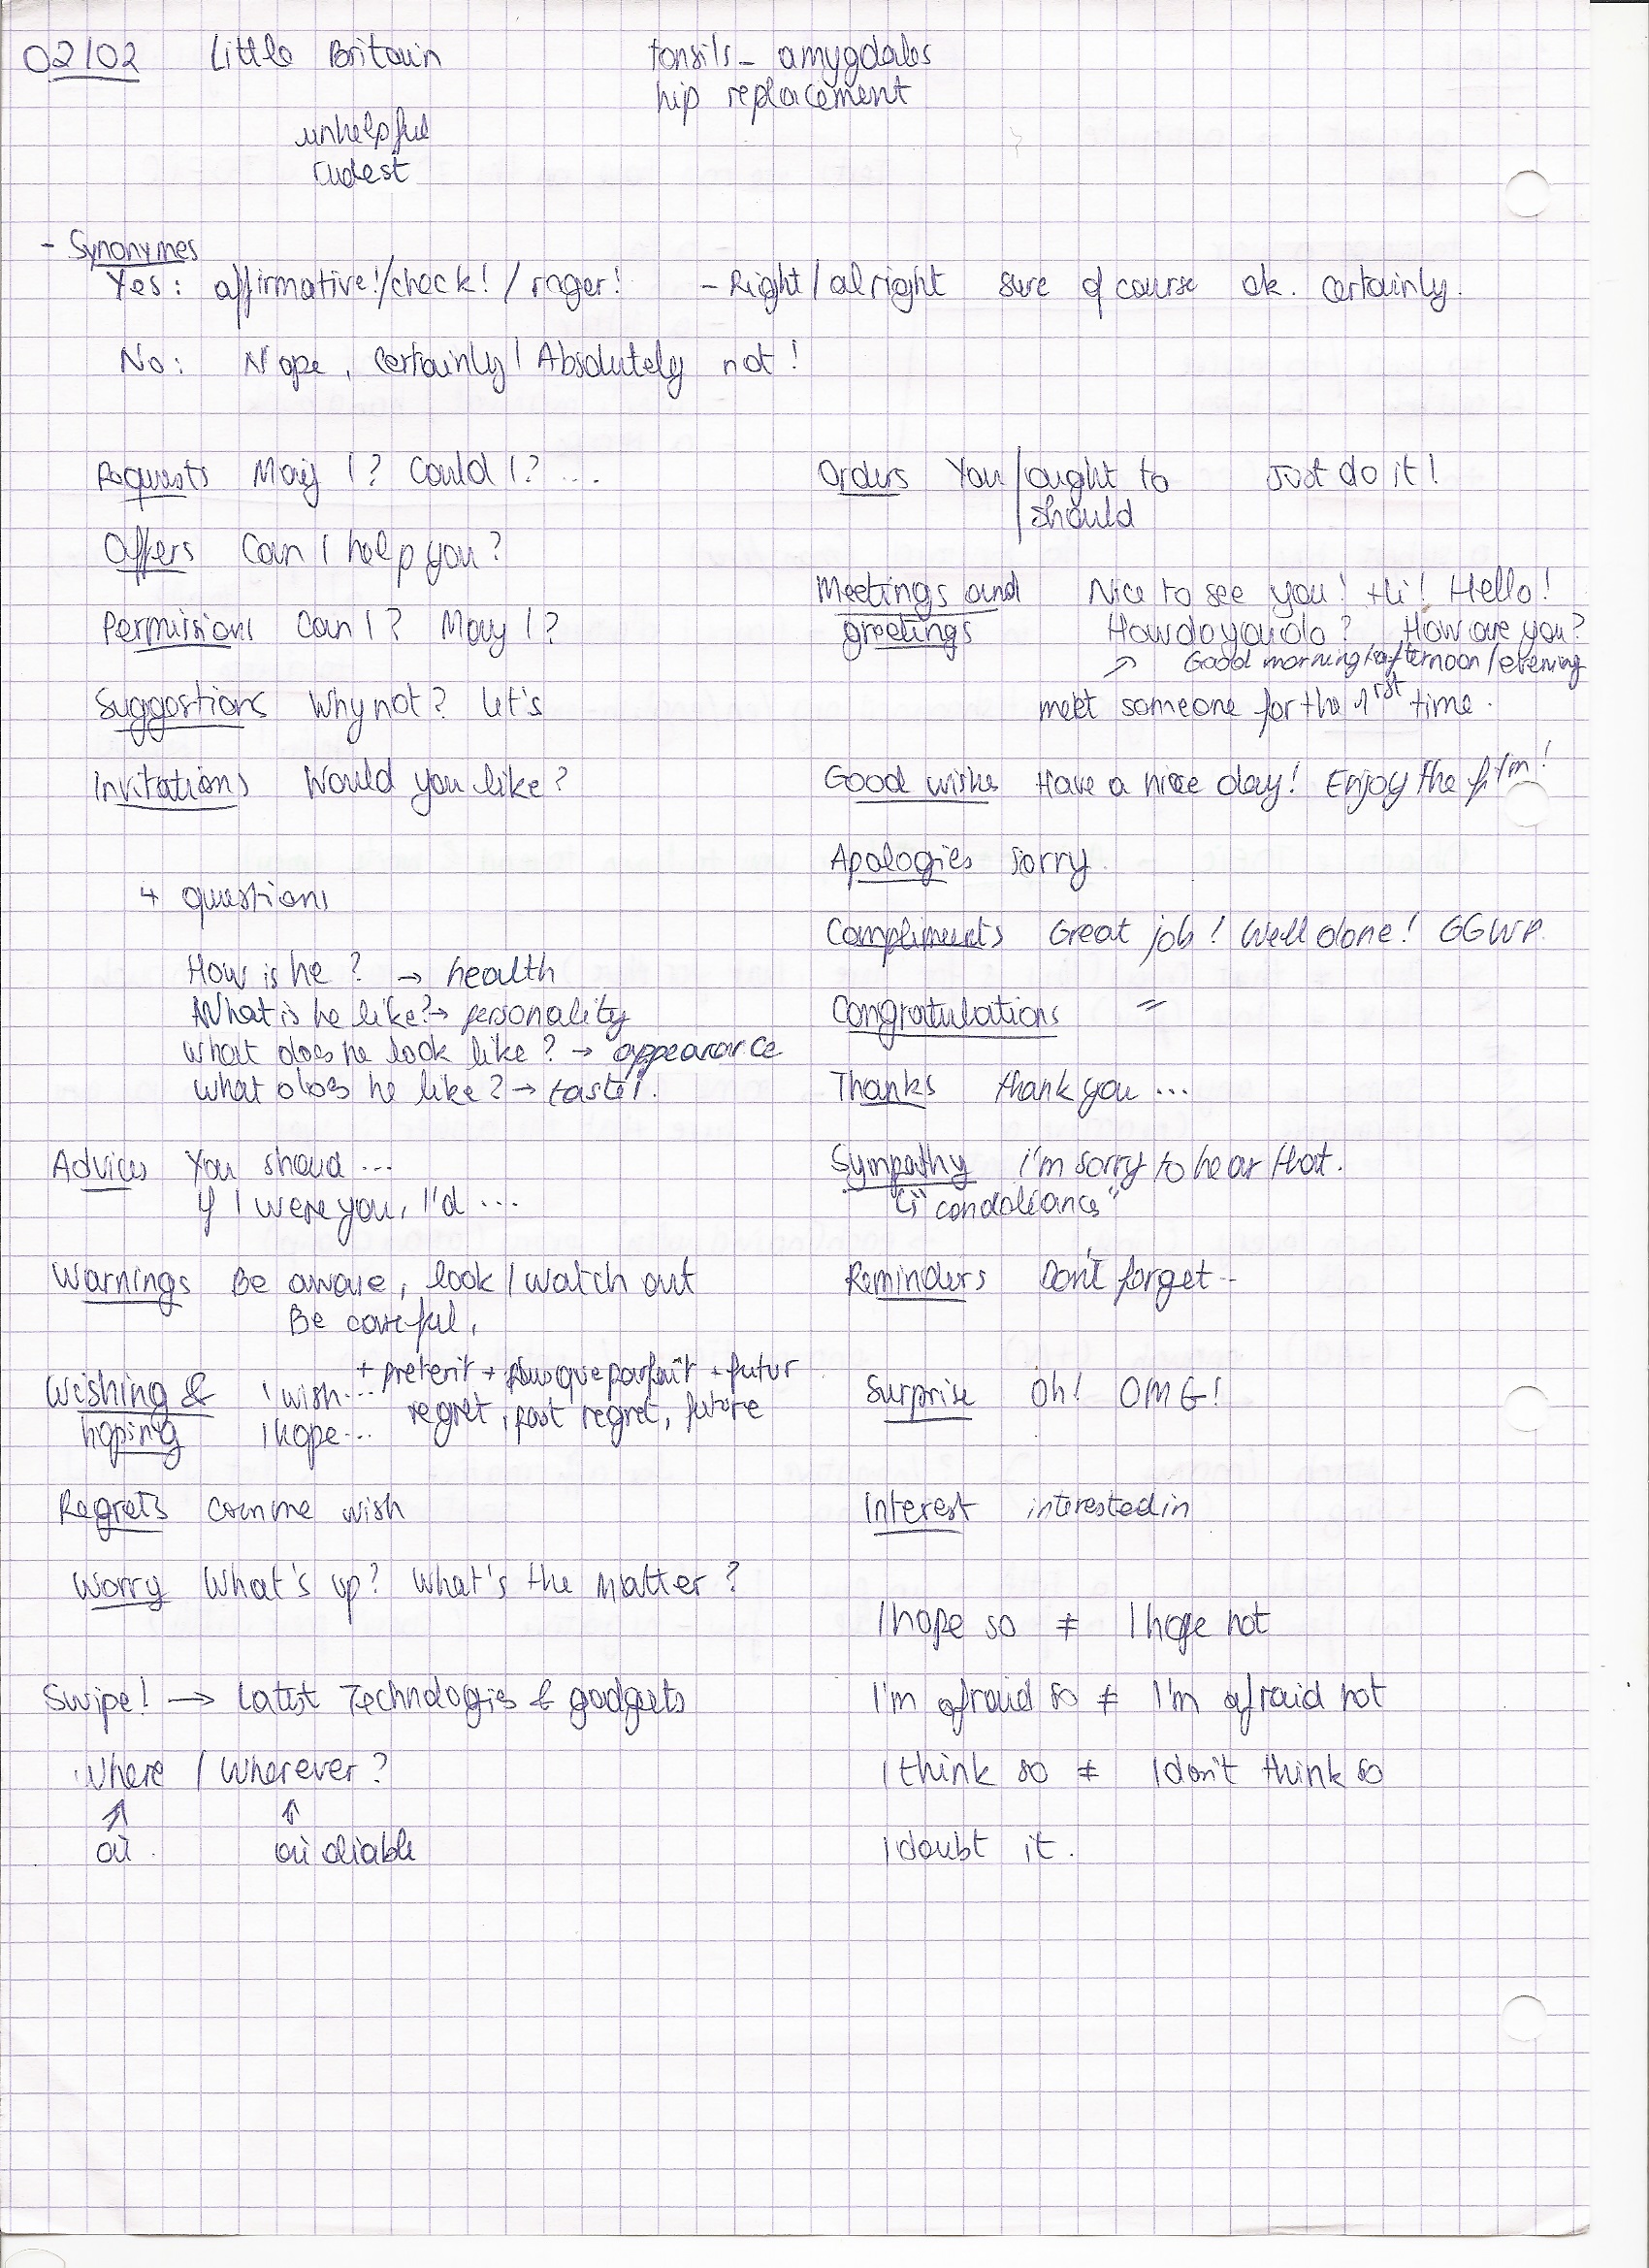 02/02 Little Britain tonsils - amygdales
hip replacement
unhelpful
rudest
- Synonymes
Yes: affirmative!/check!/roger! - Right/alright sure of course ok. certainly.
No: Nope, certainly/Absolutely not!
Requests May I? Could I? ...
Offers Can I help you?
Permissions Can I? May I?
Suggestions Why not? Let's
Invitations Would you like?
4 questions
How is he? → health
What is he like? → personality
What does he look like? → appearance
What does he like? → tastes.
Advices You shoud ...
If I were you, I'd ...
Warnings Be aware, look/watch out
Be careful,
Wishing & I wish... + preterit + plusqueparfait + futur
hoping I hope... regret, past regret, future
Regrets comme wish
Worry What's up? What's the matter?
Swipe! → Latest Technologies & gadgets
Where / Wherever?
où où diable
Orders You / ought to Just do it!
should
Meetings and Nice to see you! Hi! Hello!
greetings How do you do? How are you?
Good morning/afternoon/evening
meet someone for the 1rst time.
Good wishes Have a nice day! Enjoy the film!
Apologies sorry.
Compliments Great job! Well done! GGWP.
Congratulations =
Thanks thank you ...
Sympathy i'm sorry to hear that.
↳ "condoléances"
Reminders Don't forget --
Surprise Oh! OMG!
Interest interested in
I hope so ≠ I hope not
I'm afraid so ≠ I'm afraid not
I think so ≠ I don't think so
I doubt it.